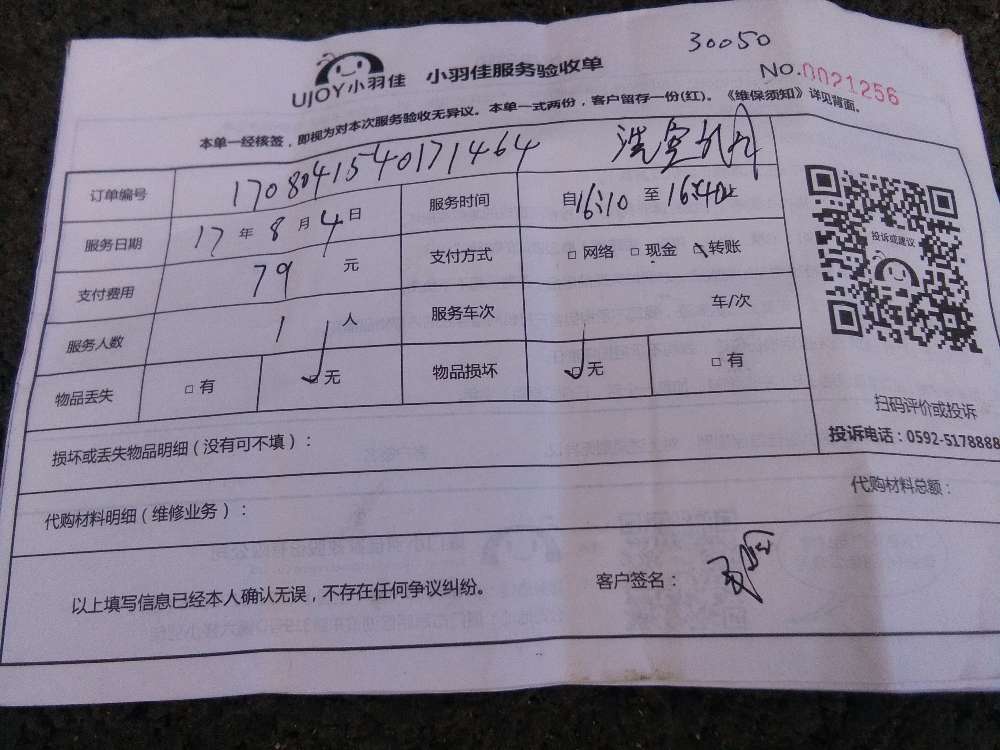 30050
UJOY小羽佳 小羽佳服务验收单
NO.0021256
本单一经核签，即视为对本次服务验收无异议。本单一式两份，客户留存一份(红)。《维保须知》详见背面。
订单编号 1708041540171464 洗空
服务日期 17 年 8 月 4 日 服务时间 自16:10 至 16:40
支付费用 79 元 支付方式 □ 网络 □ 现金 □ 转账
服务人数 1 人 服务车次 车/次
物品丢失 □ 有 □ 无 物品损坏 □ 无 □ 有
投诉或建议
扫码评价或投诉
投诉电话：0592-5178888
损坏或丢失物品明细（没有可不填）：
代购材料明细（维修业务）： 代购材料总额：
以上填写信息已经本人确认无误，不存在任何争议纠纷。 客户签名：